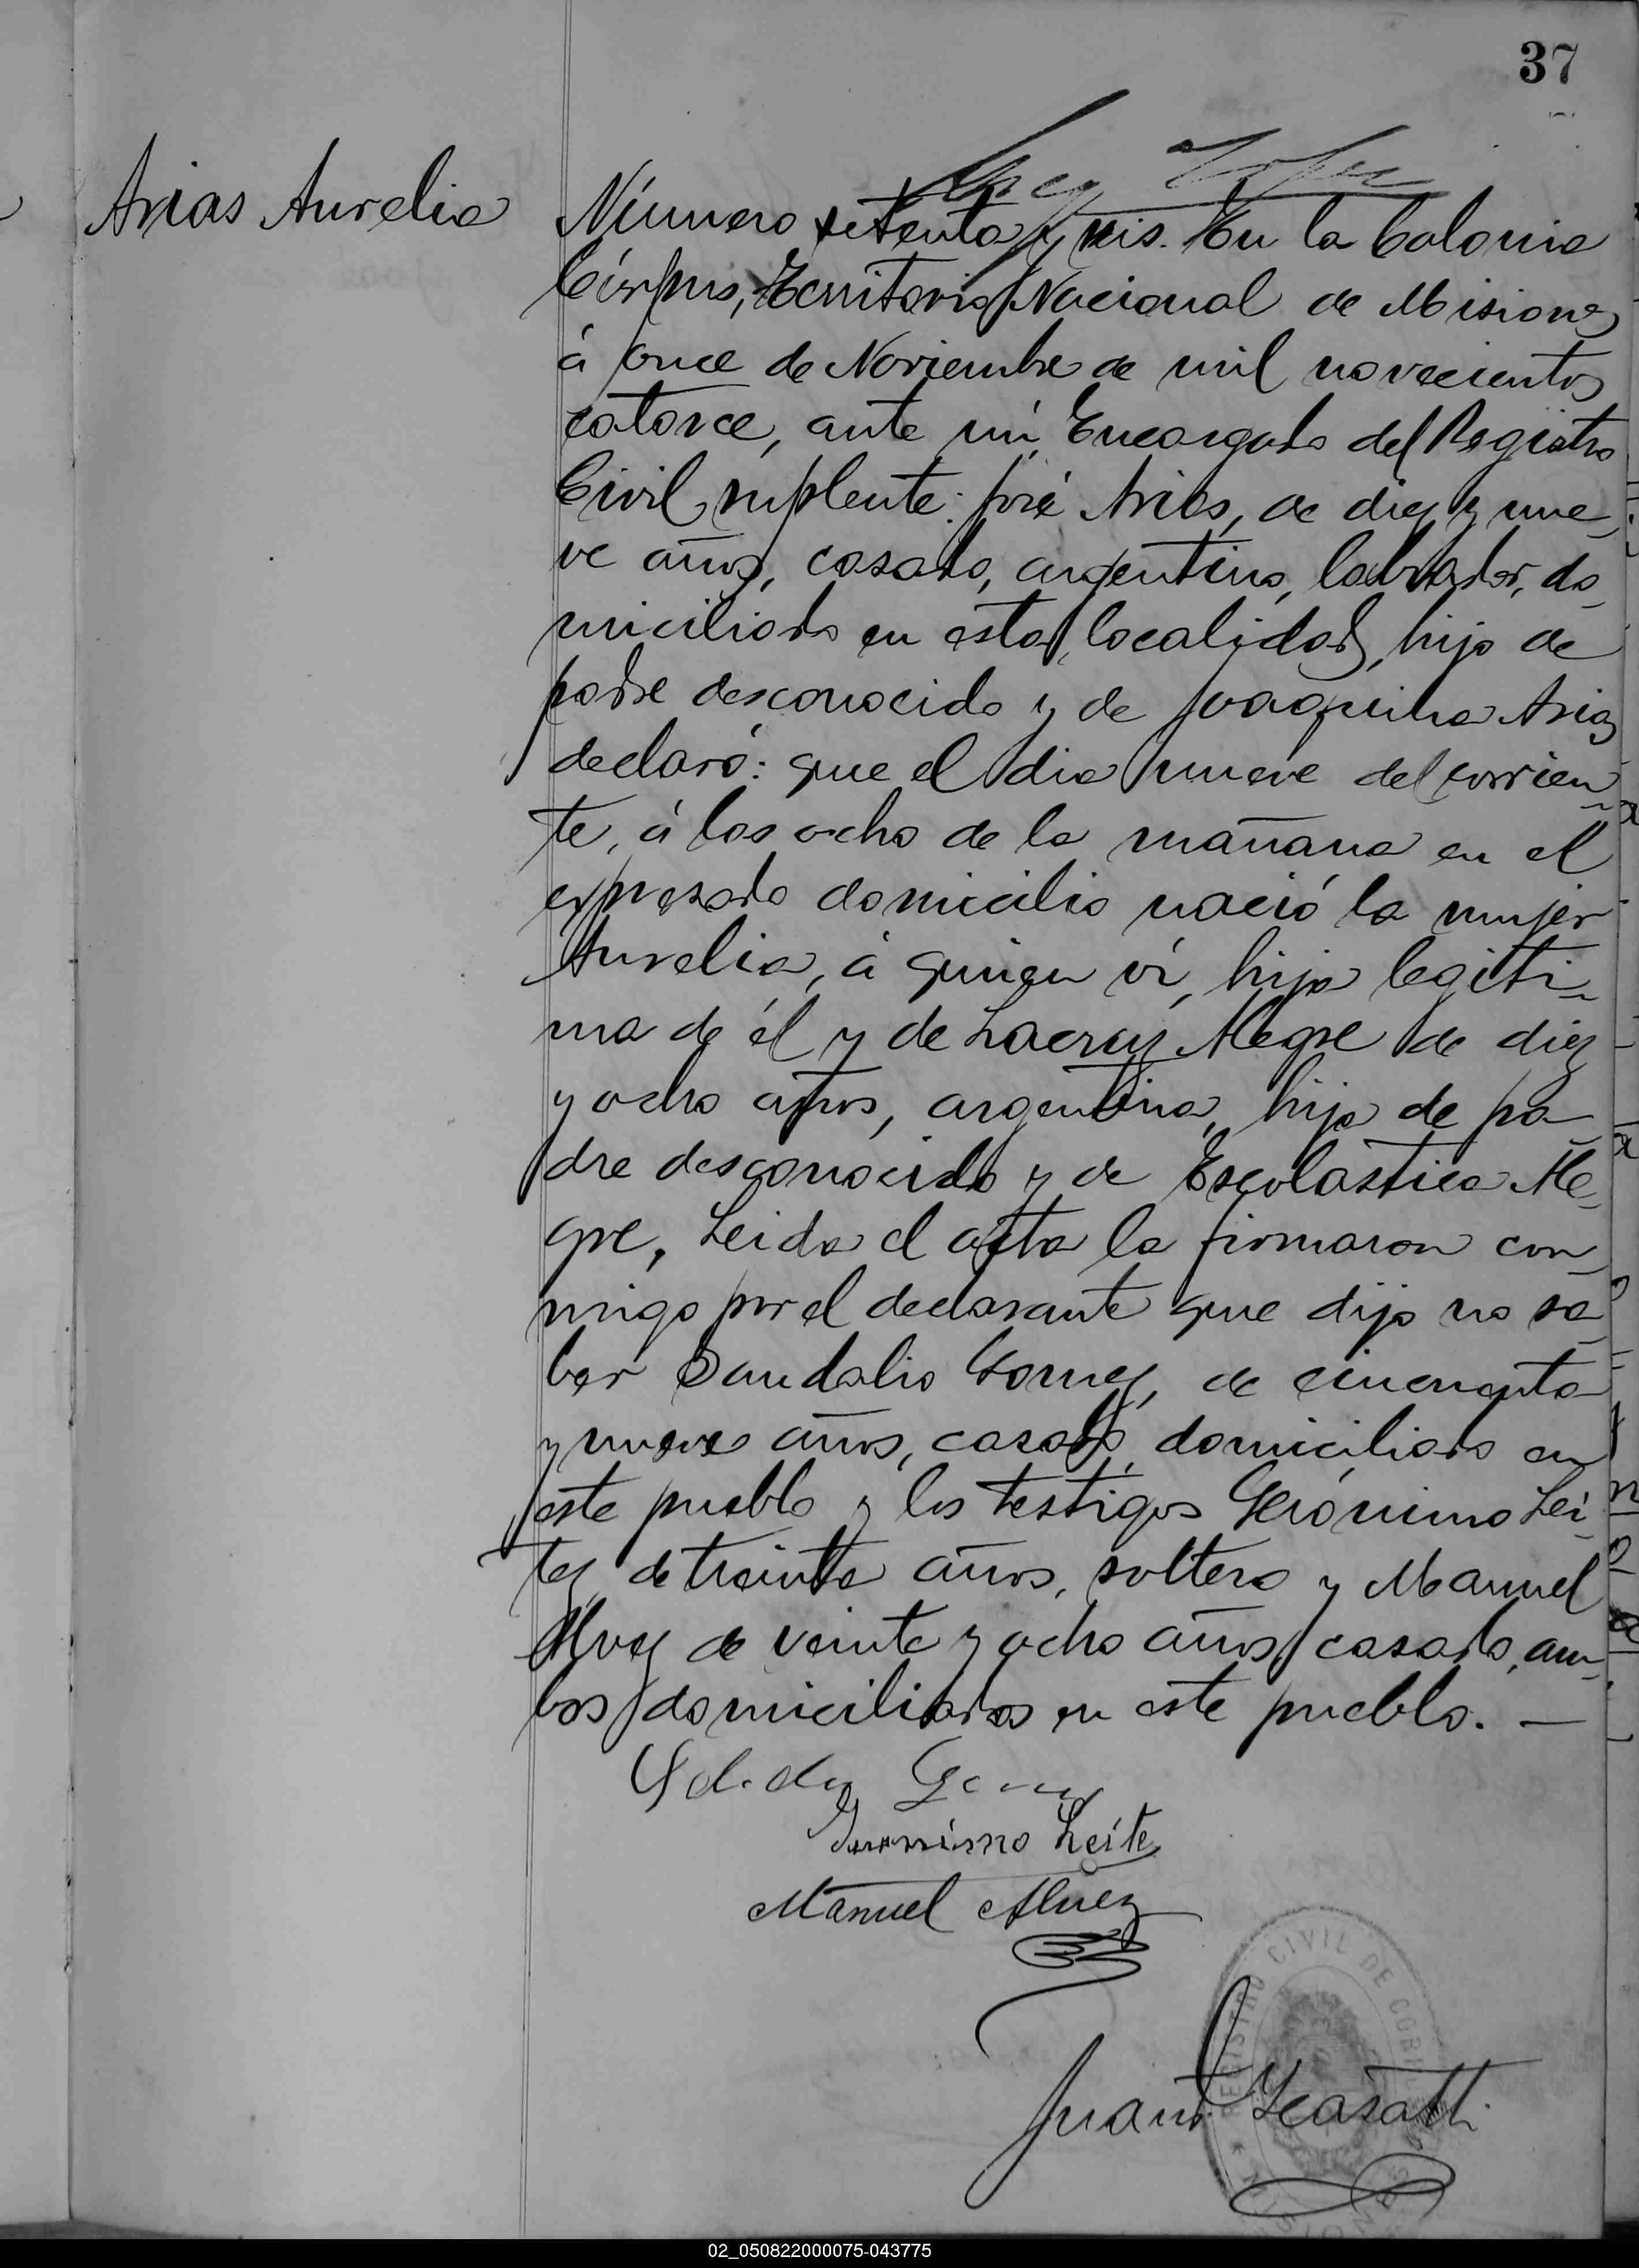 37
Arias Aurelia
Número setenta y seis. En la Colonia
Córpus, Territorio Nacional de Misiones
á once de Noviembre de mil novecientos
catorce, ante mí, Encargado del Registro
Civil suplente: José Arias, de diez y nue-
ve años, casado, argentino, labrador, do-
miciliado en esta localidad, hijo de
padre desconocido y de Joaquina Arias
declaró: que el dia nueve del corrien-
te, á las ocho de la mañana en el
expresado domicilio nació la mujer
Aurelia, á quien ví, hija legíti-
ma de él y de Lacruz Alegre de diez
y ocho años, argentina, hija de pa-
dre desconocido y de Escolástica Ale-
gre. Leida el acta la firmaron con-
migo por el declarante que dijo no sa-
ber Sandalio Gomez, de cincuenta
y nueve años, casado, domiciliado en
este pueblo y los testigos Gerónimo Lei-
tes de treinta años, soltero y Manuel
Alvez de veinte y ocho años, casado, am-
bos domiciliados en este pueblo. —
Geronimo Leite
Manuel Alvez
REGISTRO CIVIL DE
Juan
02_050822000075-043775